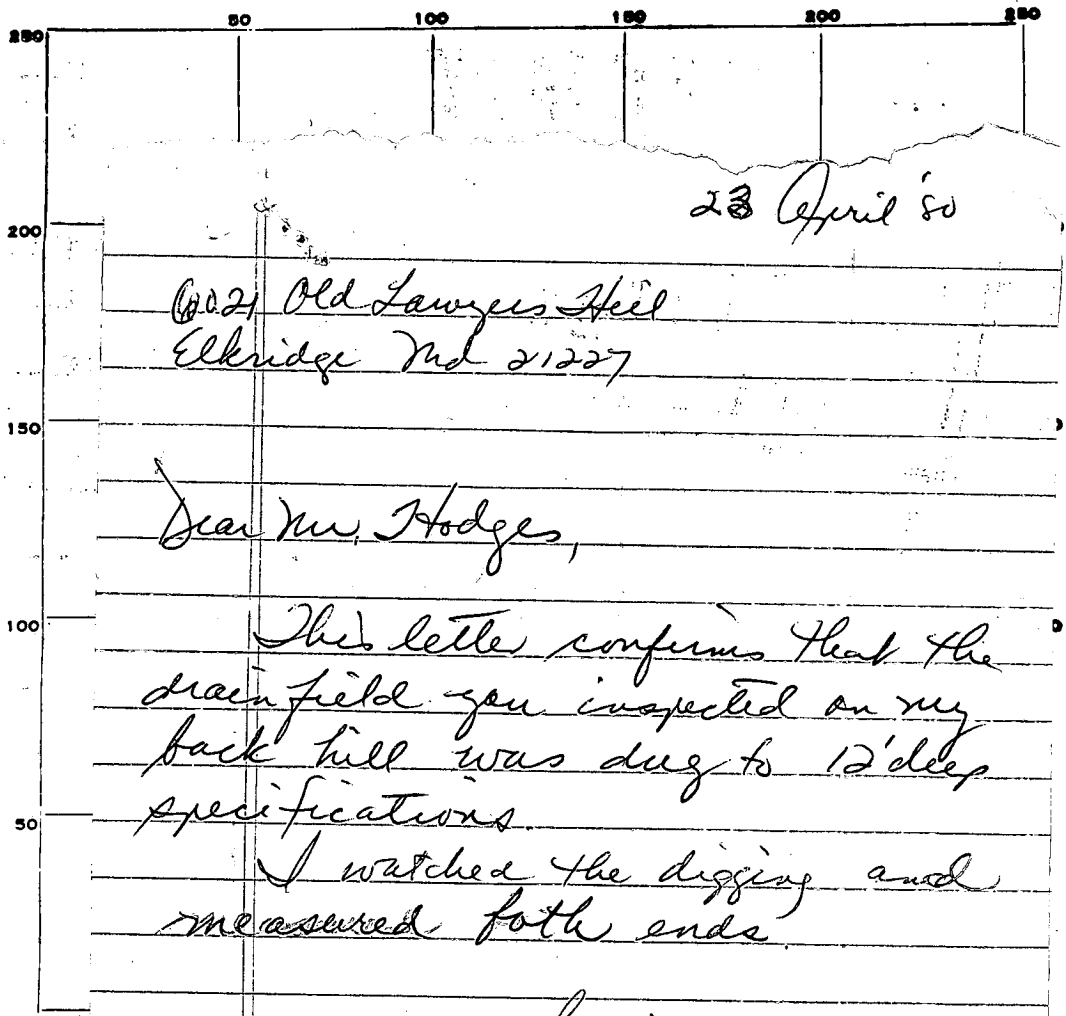 50 100 150 200 250
250
23 April '80
200
6021 Old Lawyers Hill
Elkridge Md 21227
150
Dear Mr. Hodges,
100
This letter confirms that the
drain field you inspected on my
back hill was dug to 12' deep
specifications.
50
I watched the digging and
measured both ends.